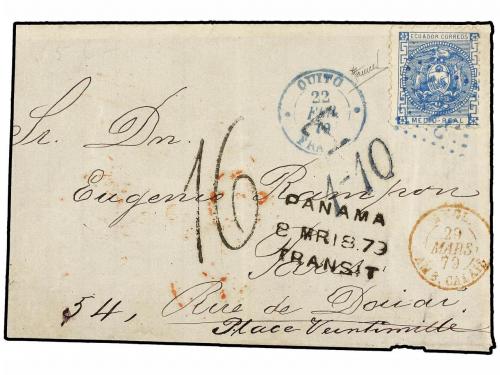 ECUADOR CORREOS
MEDIO REAL
QUITO
22
FEB.
79
FRANCA
Sr. Dn.
16
4-10
Eugenio Rampon
PANAMA
8 MR 18.79
TRANSIT
Paris
29
MARS
79
AMB. CALAIS
54, Rue de Douai.
Place Veintimille